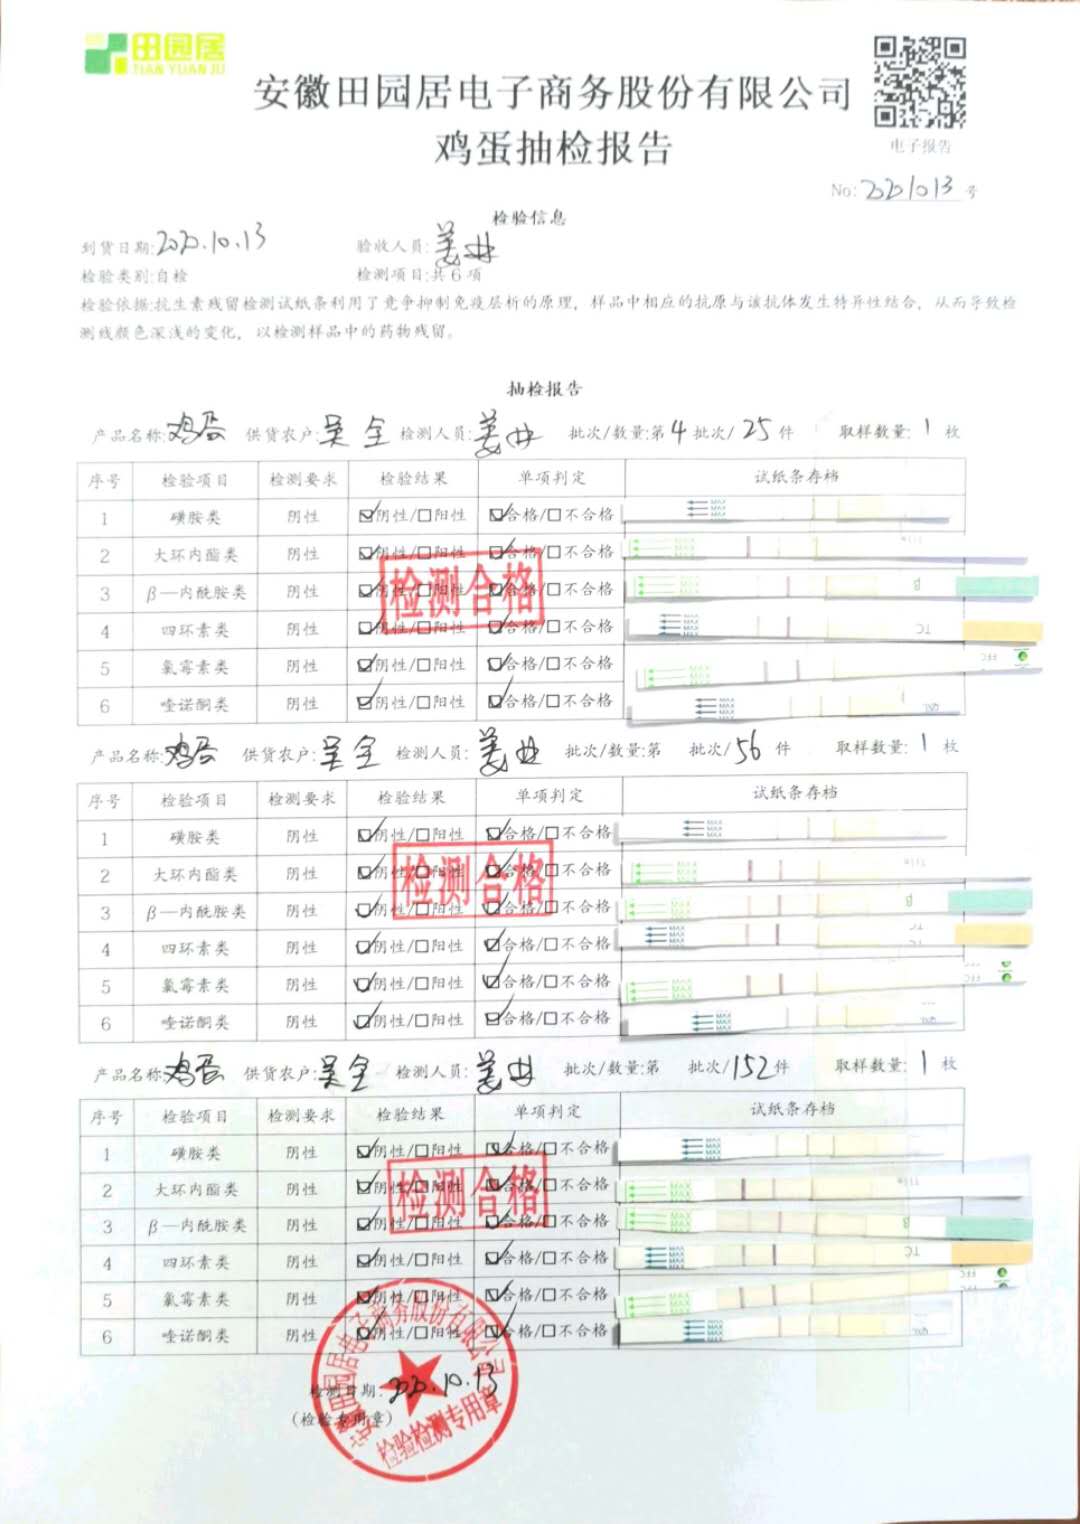 田园居
TIAN YUAN JU
安徽田园居电子商务股份有限公司
鸡蛋抽检报告
电子报告
No: 20201013 号
检验信息
到货日期:2020.10.13 验收人员:
检验类别:自检 检测项目:共6项
检验依据:抗生素残留检测试纸条利用了竞争抑制免疫层析的原理，样品中相应的抗原与该抗体发生特异性结合，从而导致检
测线颜色深浅的变化，以检测样品中的药物残留。
抽检报告
产品名称:鸡蛋 供货农户:吴全 检测人员: 批次/数量:第4批次/25件 取样数量:1枚
序号 检验项目 检测要求 检验结果 单项判定 试纸条存档
1 磺胺类 阴性 ☑阴性/☐阳性 ☑合格/☐不合格 MAX
2 大环内酯类 阴性 ☑阴性/☐阳性 ☑合格/☐不合格 MAX
3 β—内酰胺类 阴性 ☑阴性/☐阳性 ☑合格/☐不合格 MAX β
4 四环素类 阴性 ☑阴性/☐阳性 ☑合格/☐不合格 MAX TC
5 氯霉素类 阴性 ☑阴性/☐阳性 ☑合格/☐不合格 MAX FFC
6 喹诺酮类 阴性 ☑阴性/☐阳性 ☑合格/☐不合格 MAX QNL
检测合格
产品名称:鸡蛋 供货农户:吴全 检测人员: 批次/数量:第 批次/56件 取样数量:1枚
序号 检验项目 检测要求 检验结果 单项判定 试纸条存档
1 磺胺类 阴性 ☑阴性/☐阳性 ☑合格/☐不合格 MAX
2 大环内酯类 阴性 ☑阴性/☐阳性 ☑合格/☐不合格 MAX
3 β—内酰胺类 阴性 ☑阴性/☐阳性 ☑合格/☐不合格 MAX β
4 四环素类 阴性 ☑阴性/☐阳性 ☑合格/☐不合格 MAX TC
5 氯霉素类 阴性 ☑阴性/☐阳性 ☑合格/☐不合格 MAX FFC
6 喹诺酮类 阴性 ☑阴性/☐阳性 ☑合格/☐不合格 MAX QNL
检测合格
产品名称:鸡蛋 供货农户:吴全 检测人员: 批次/数量:第 批次/152件 取样数量:1枚
序号 检验项目 检测要求 检验结果 单项判定 试纸条存档
1 磺胺类 阴性 ☑阴性/☐阳性 ☑合格/☐不合格 MAX
2 大环内酯类 阴性 ☑阴性/☐阳性 ☑合格/☐不合格 MAX
3 β—内酰胺类 阴性 ☑阴性/☐阳性 ☑合格/☐不合格 MAX β
4 四环素类 阴性 ☑阴性/☐阳性 ☑合格/☐不合格 MAX TC
5 氯霉素类 阴性 ☑阴性/☐阳性 ☑合格/☐不合格 MAX FFC
6 喹诺酮类 阴性 ☑阴性/☐阳性 ☑合格/☐不合格 MAX QNL
检测合格
检测日期: 2020.10.13
(检验专用章)
安徽田园居电子商务股份有限公司
检验检测专用章